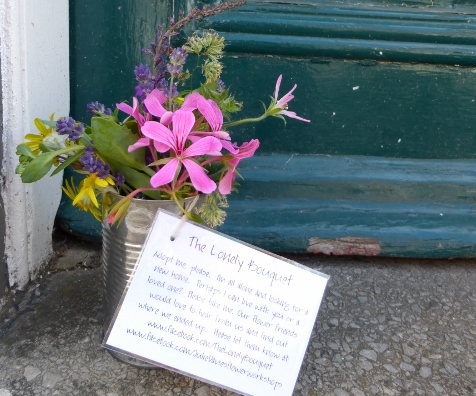 The Lonely Bouquet
Adopt me please. I'm all alone and looking for a
new home. Perhaps I can live with you or a
loved one? Please take me. Our flower friends
would love to hear from us and find out
where we ended up. Please let them know at
www.facebook.com/TheLonelyBouquet
www.facebook.com/